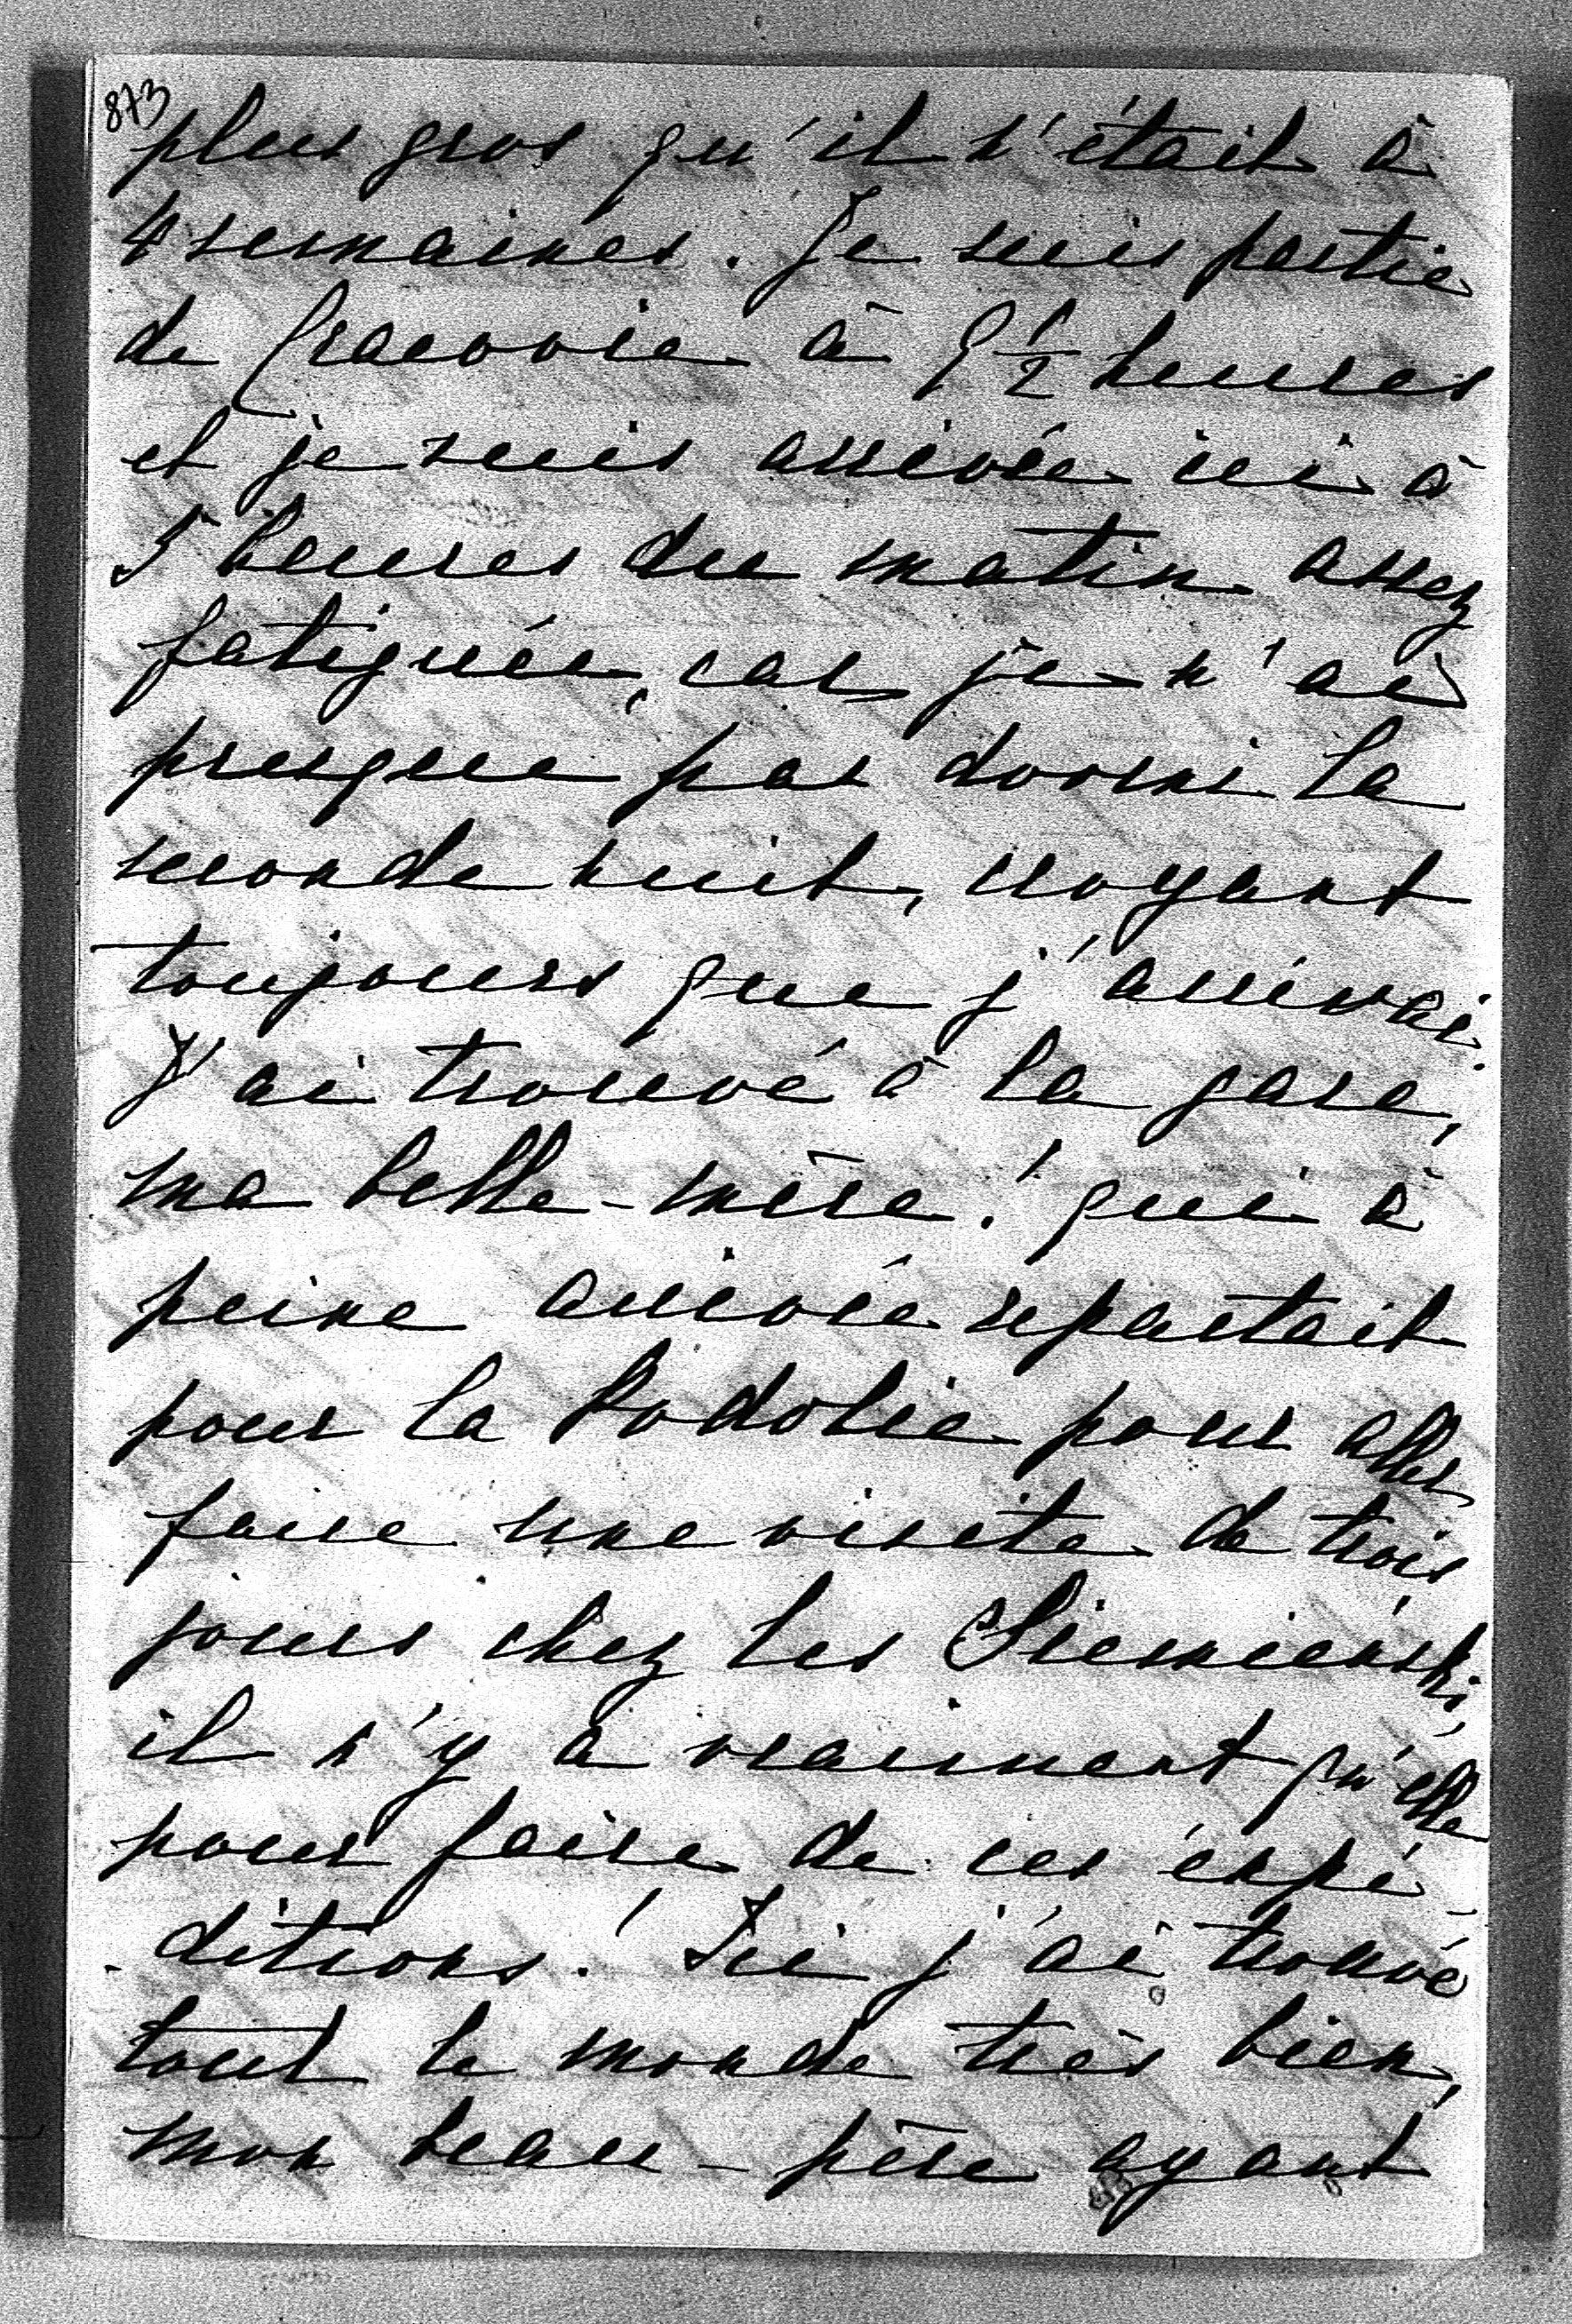 873
plus gros qu'il n'était à
4 semaines. Je suis partie
de Cracovie à 9 1/2 heures
et je suis arrivée ici à
5 heures du matin assez
fatiguée, car je n'ai
presque pas dormi la
seconde nuit, croyant
toujours que j'arrivai.
J'ai trouvé à la gare,
ma belle-mère! qui à
peine arrivée repartait
pour la Podolie pour aller
faire une visite de trois
jours chez les Siemieński,
il n'y a vraiment qu'elle
pour faire de ces expé-
ditions! Ici j'ai trouvé
tout le monde très bien,
mon beau-père ayant